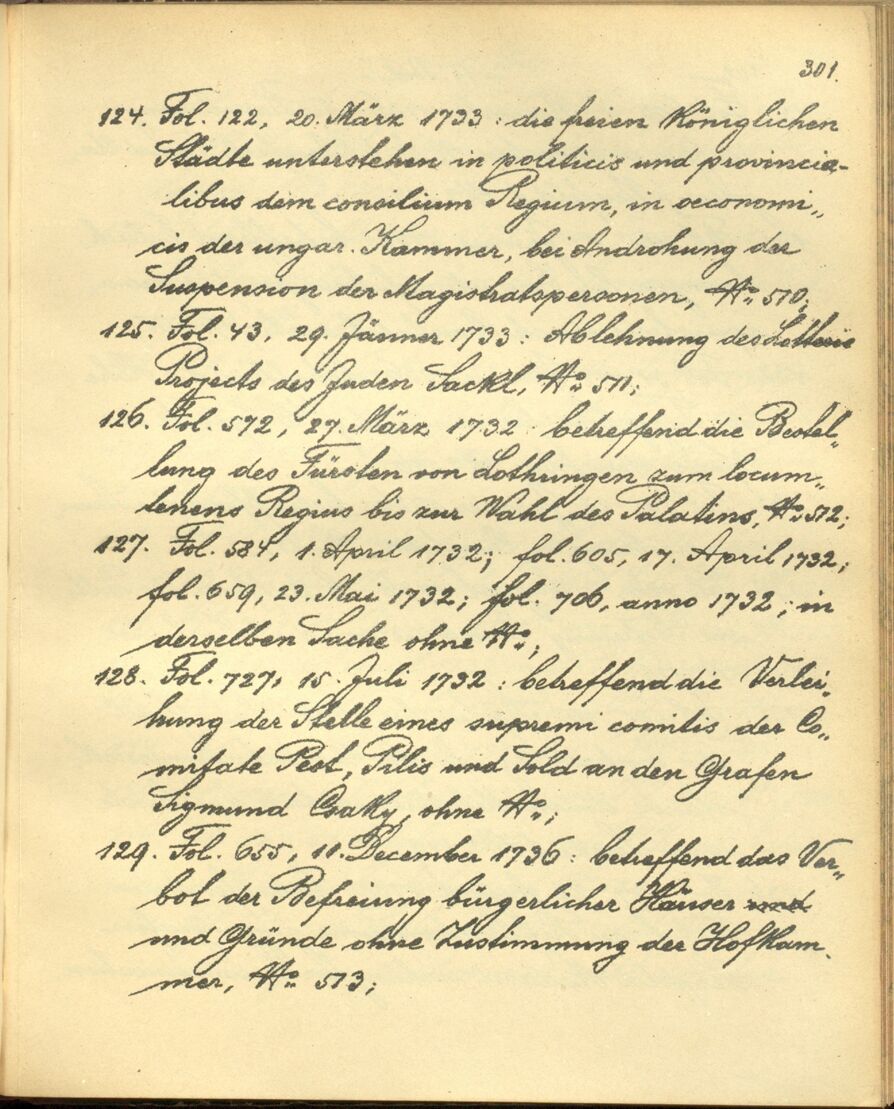 301.
124. Fol. 122, 20. März 1733 : die freien Königlichen
Städte unterstehen in politicis und provincia-
libus dem consilium Regium, in oeconomi„
cis der ungar. Kammer, bei Androhung der
Suspension der Magistratspersonen, No 510;
125. Fol. 43, 29. Jänner 1733 : Ablehnung des Lotterie
Projects des Juden Sackl, No 511;
126. Fol. 572, 27. März 1732 betreffend die Bestel„
lung des Fürsten von Lothringen zum locum„
tenens Regius bis zur Wahl des Palatins, No 512;
127. Fol. 584, 1. April 1732; fol. 605, 17. April 1732;
fol. 659, 23. Mai 1732; fol. 706, anno 1732; in
derselben Sache ohne No;
128. Fol. 727, 15. Juli 1732 : betreffend die Verlei„
hung der Stelle eines supremi comitis der Co„
mitate Pest, Pilis und Sold an den Grafen
Sigmund Csaky, ohne No;
129. Fol. 655, 11. December 1736 : betreffend das Ver„
bot der Befreiung bürgerlicher Häuser und
und Gründe ohne Zustimmung der Hofkam-
mer, No 513;